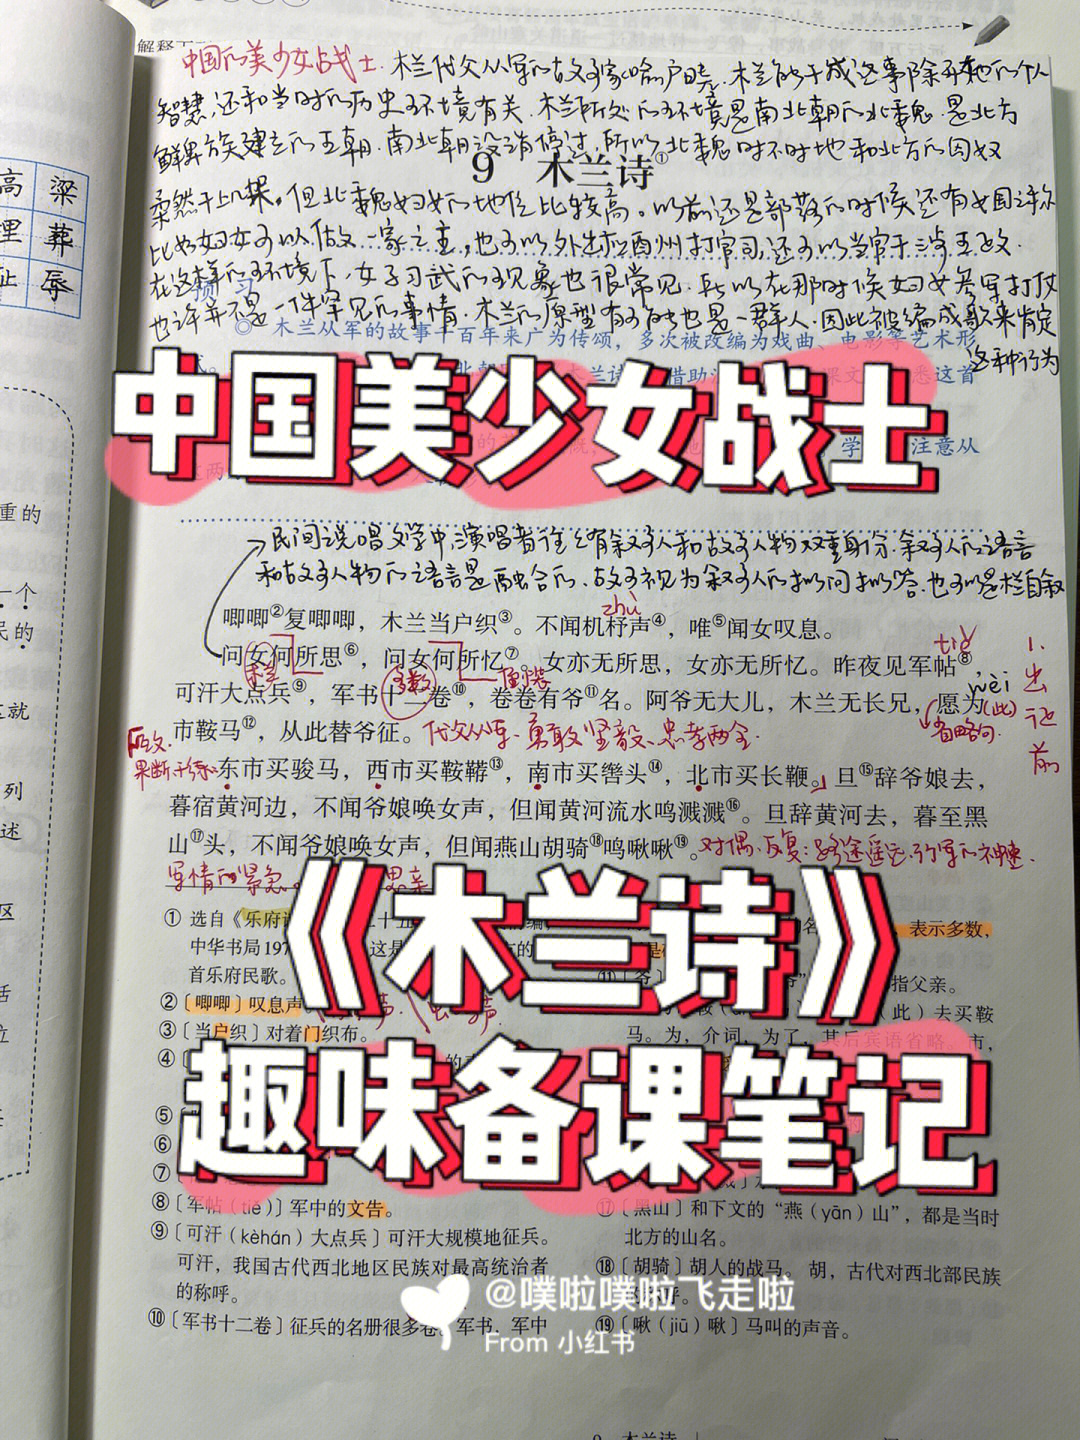 解释
中国的美少女战士。木兰代父从军的故事家喻户晓。木兰能干成这事除开她的个人
智慧,还和当时的历史环境有关。木兰所处的环境是南北朝的北魏。是北方
鲜卑族建立的王朝。南北朝没消停过,所以北魏时不时地和北方的匈奴
9 木兰诗①
柔然干上几架。但北魏妇女的地位比较高。以前还是部落的时候还有女国
比如妇女可以做一家之主,也可以外出打官司,还可以当官干涉王政。
在这样的环境下,女子习武的现象也很常见。所以在那时候妇女参军打仗
预习
也许并不是一件罕见的事情。木兰的原型有可能也是一群人。因此被编成歌来肯定
这种行为
◎ 木兰从军的故事千百年来广为传颂,多次被改编为戏曲、电影等艺术形
中国美少女战士
注意从
民间说唱文学中,演唱者往往有叙事人和故事人物双重身份。叙事人的语言
和故事人物的语言是融合的。故可视为叙事人的拟问拟答。也可以是木兰自叙
zhù
唧唧②复唧唧,木兰当户织③。不闻机杼声④,唯⑤闻女叹息。
tiě
问女何所思⑥,问女何所忆⑦。女亦无所思,女亦无所忆。昨夜见军帖⑧,
木兰 多数 wèi
可汗大点兵⑨,军书十二卷⑩,卷卷有爷⑪名。阿爷无大儿,木兰无长兄,愿为(此)
省略句
市鞍马⑫,从此替爷征。代父从军。勇敢坚毅、忠孝两全。
1.出征前
东市买骏马,西市买鞍鞯⑬,南市买辔头⑭,北市买长鞭。旦⑮辞爷娘去,
暮宿黄河边,不闻爷娘唤女声,但闻黄河流水鸣溅溅⑯。旦辞黄河去,暮至黑
山⑰头,不闻爷娘唤女声,但闻燕山胡骑⑱鸣啾啾⑲。对偶、反复:路途遥远,行军的神速,
军情的紧急。 思亲
《木兰诗》
趣味备课笔记
① 选自《乐府
中华书局197
首乐府民歌。
②〔唧唧〕叹息声
③〔当户织〕对着门织布。
④
⑤
⑥
⑦
⑧〔军帖(tiě)〕军中的文告。
⑨〔可汗(kèhán)大点兵〕可汗大规模地征兵。
可汗,我国古代西北地区民族对最高统治者
的称呼。
⑩〔军书十二卷〕征兵的名册很多卷。军书,军中
表示多数,
指父亲。
(此)去买鞍
马。为,介词,为了,其后宾语省略。市,
⑰〔黑山〕和下文的“燕(yān)山”,都是当时
北方的山名。
⑱〔胡骑〕胡人的战马。胡,古代对西北部民族
⑲〔啾(jiū)啾〕马叫的声音。
@噗啦噗啦飞走啦
From 小红书
9 木兰诗
高 梁
理 葬
耻 辱
重的
一个
民的
就
列
述
区
活
位